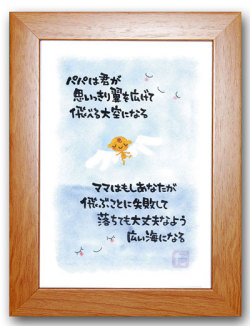 パパは君が
思いっきり翼を広げて
飛べる大空になる
ママはもしあなたが
飛ぶことに失敗して
落ちても大丈夫なよう
広い海になる